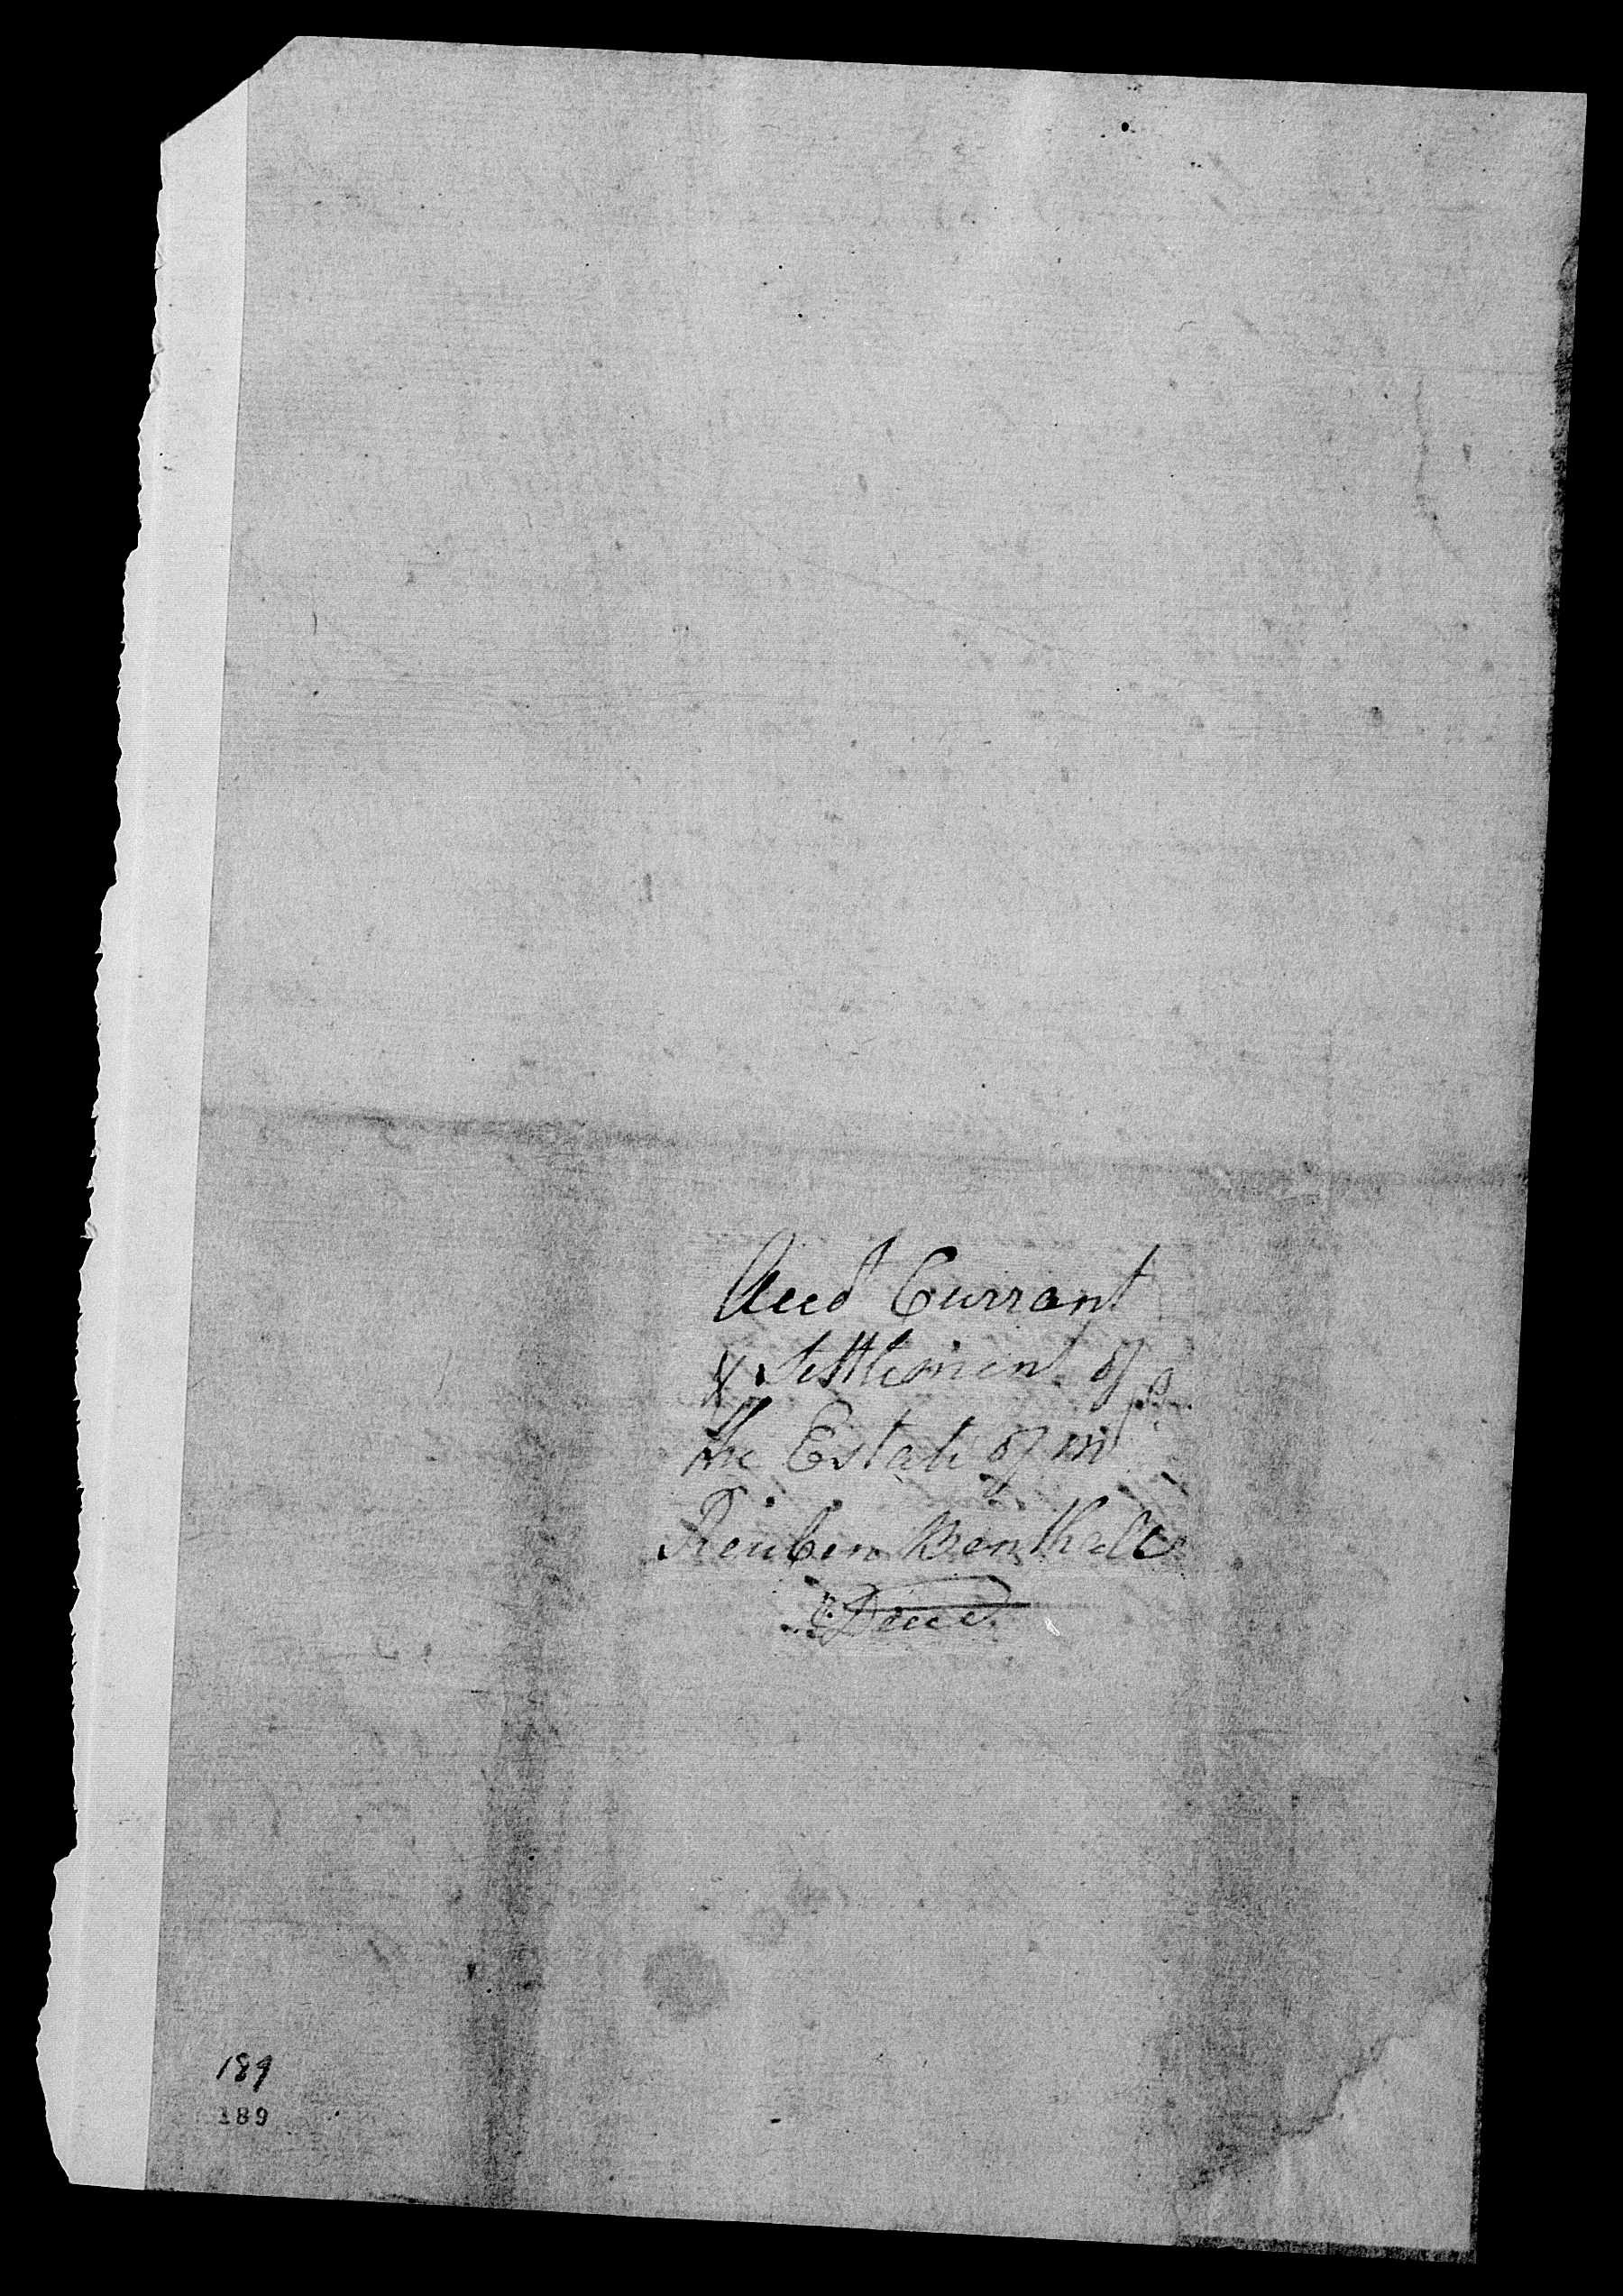 Acco^t Currant
& Settlement of
the Estate of M^r
Reuben Benthall
Decd.
189
189